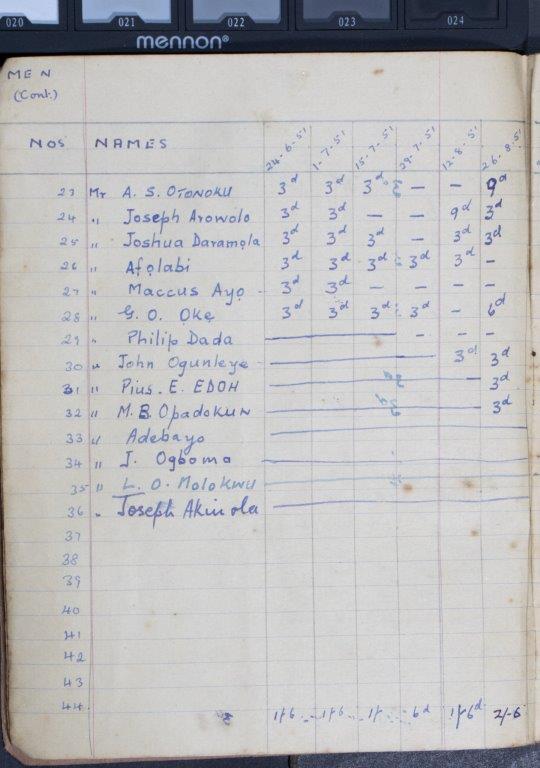 020 021 022 023 024
mennon®
MEN
(Cont.)
NOS NAMES 24-6-51 1-7-51 15-7-51 29-7-51 12-8-51 26-8-51
23 Mr A. S. OTONOKU 3d 3d 3d — — 9d
24 " Joseph Arowolo 3d 3d — — 9d 3d
25 " Joshua Daramọla 3d 3d 3d — 3d 3d
26 " Afọlabi 3d 3d 3d 3d 3d —
27 " Maccus Ayọ 3d 3d — — — —
28 " G. O. Ọkẹ 3d 3d 3d 3d — 6d
29 " Philip Dada — — —
30 " John Ogunleye 3d 3d
31 " Pius. E. EDOH 3d
32 " M. B. Opadokun 3d
33 " Adebayo
34 " J. Ogboma
35 " L. O. Molokwu
36 " Joseph Akinola
37
38
39
40
41
42
43
44 1/6 1/6 1/ 6d 1/6d 2/-6